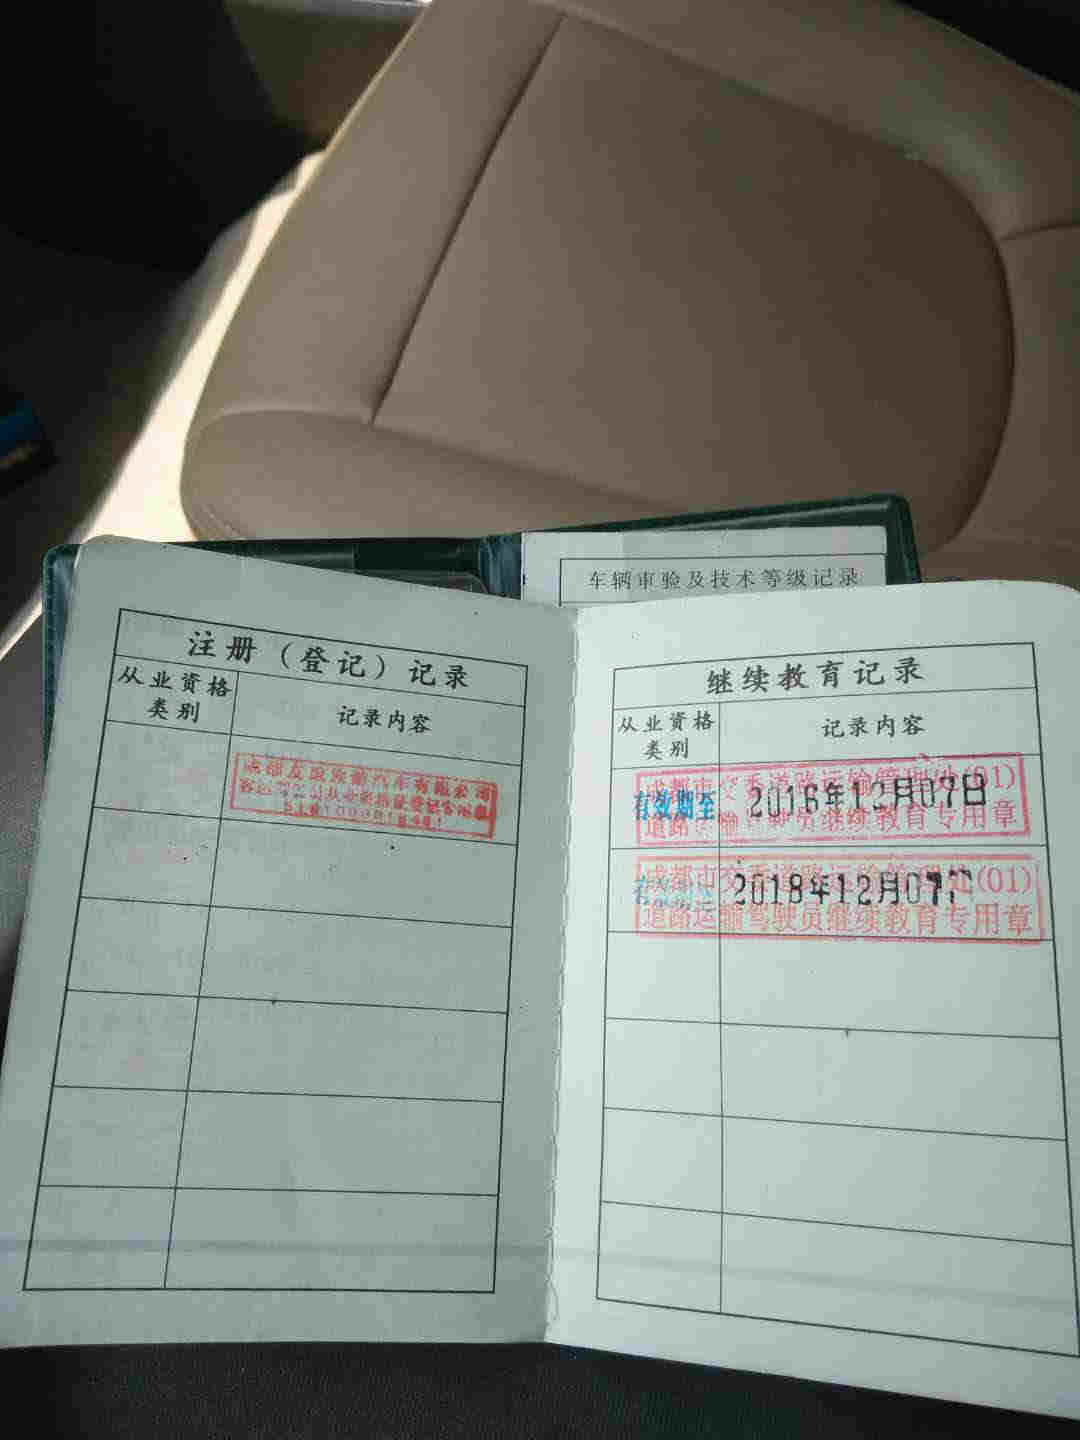 车辆审验及技术等级记录
注册（登记）记录
从业资格
类别
记录内容
继续教育记录
从业资格
类别
记录内容
成都市交委道路运输管理处(01)
有效期至 2016年12月07日
道路运输驾驶员继续教育专用章
成都市交委道路运输管理处(01)
2018年12月07
道路运输驾驶员继续教育专用章